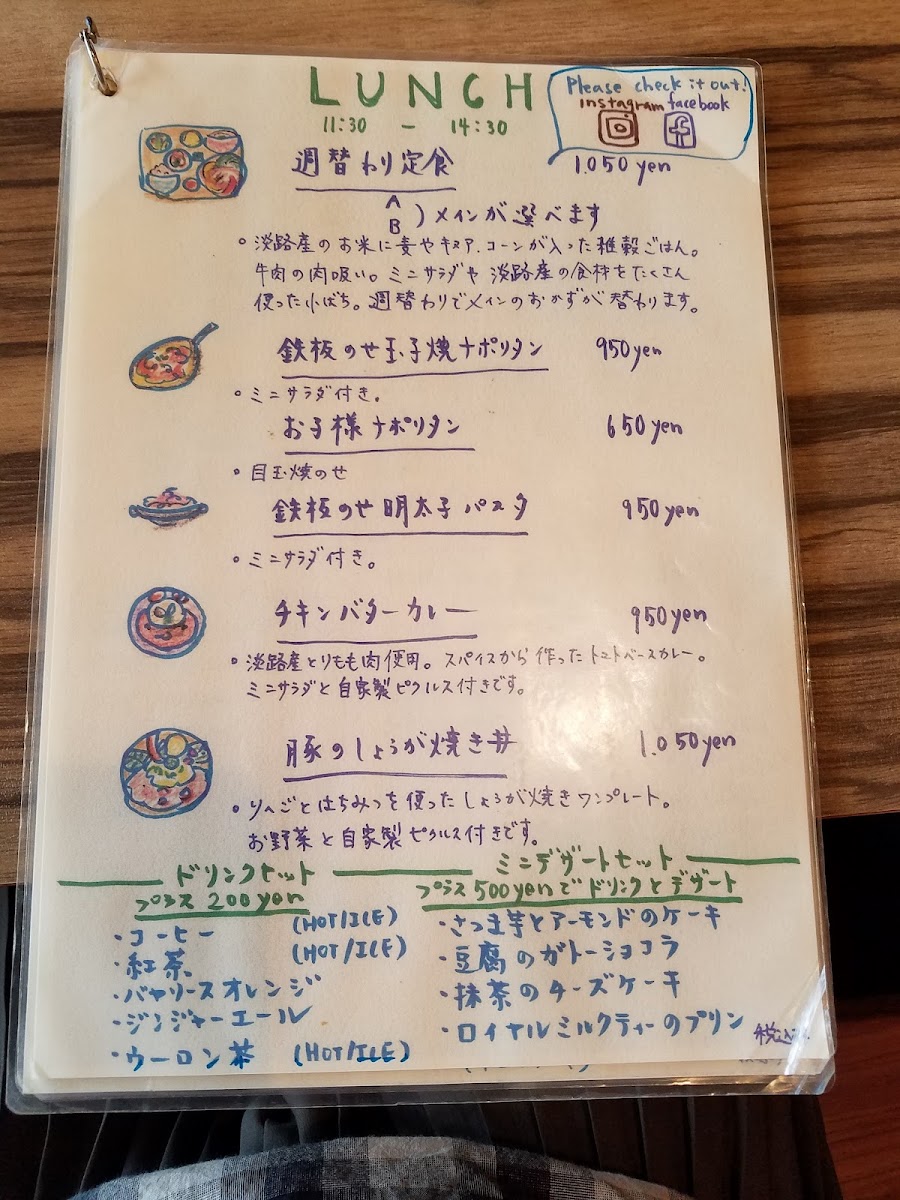 LUNCH
11:30 - 14:30
Please check it out!
instagram facebook
週替わり定食 1.050 yen
A
B ）メインが選べます
。淡路産のお米に麦やキヌア、コーンが入った雑穀ごはん。
牛肉の肉吸い。ミニサラダや 淡路産の食材をたくさん
使った小ばち。週替わりでメインのおかずが替わります。
鉄板のせ玉子焼ナポリタン 950 yen
。ミニサラダ付き。
お子様ナポリタン 650 yen
。目玉焼のせ
鉄板のせ明太子パスタ 950 yen
。ミニサラダ付き。
チキンバターカレー 950 yen
。淡路産とりもも肉使用。スパイスから作ったトマトベースカレー。
ミニサラダと自家製ピクルス付きです。
豚のしょうが焼き丼 1.050 yen
。りんごとはちみつを使ったしょうが焼きワンプレート。
お野菜と自家製ピクルス付きです。
ドリンクセット
プラス 200 yen
・コーヒー (HOT/ICE)
・紅茶 (HOT/ICE)
・バヤリースオレンジ
・ジンジャーエール
・ウーロン茶 (HOT/ICE)
ミニデザートセット
プラス 500 yen でドリンクとデザート
・さつま芋とアーモンドのケーキ
・豆腐のガトーショコラ
・抹茶のチーズケーキ
・ロイヤルミルクティーのプリン
税込